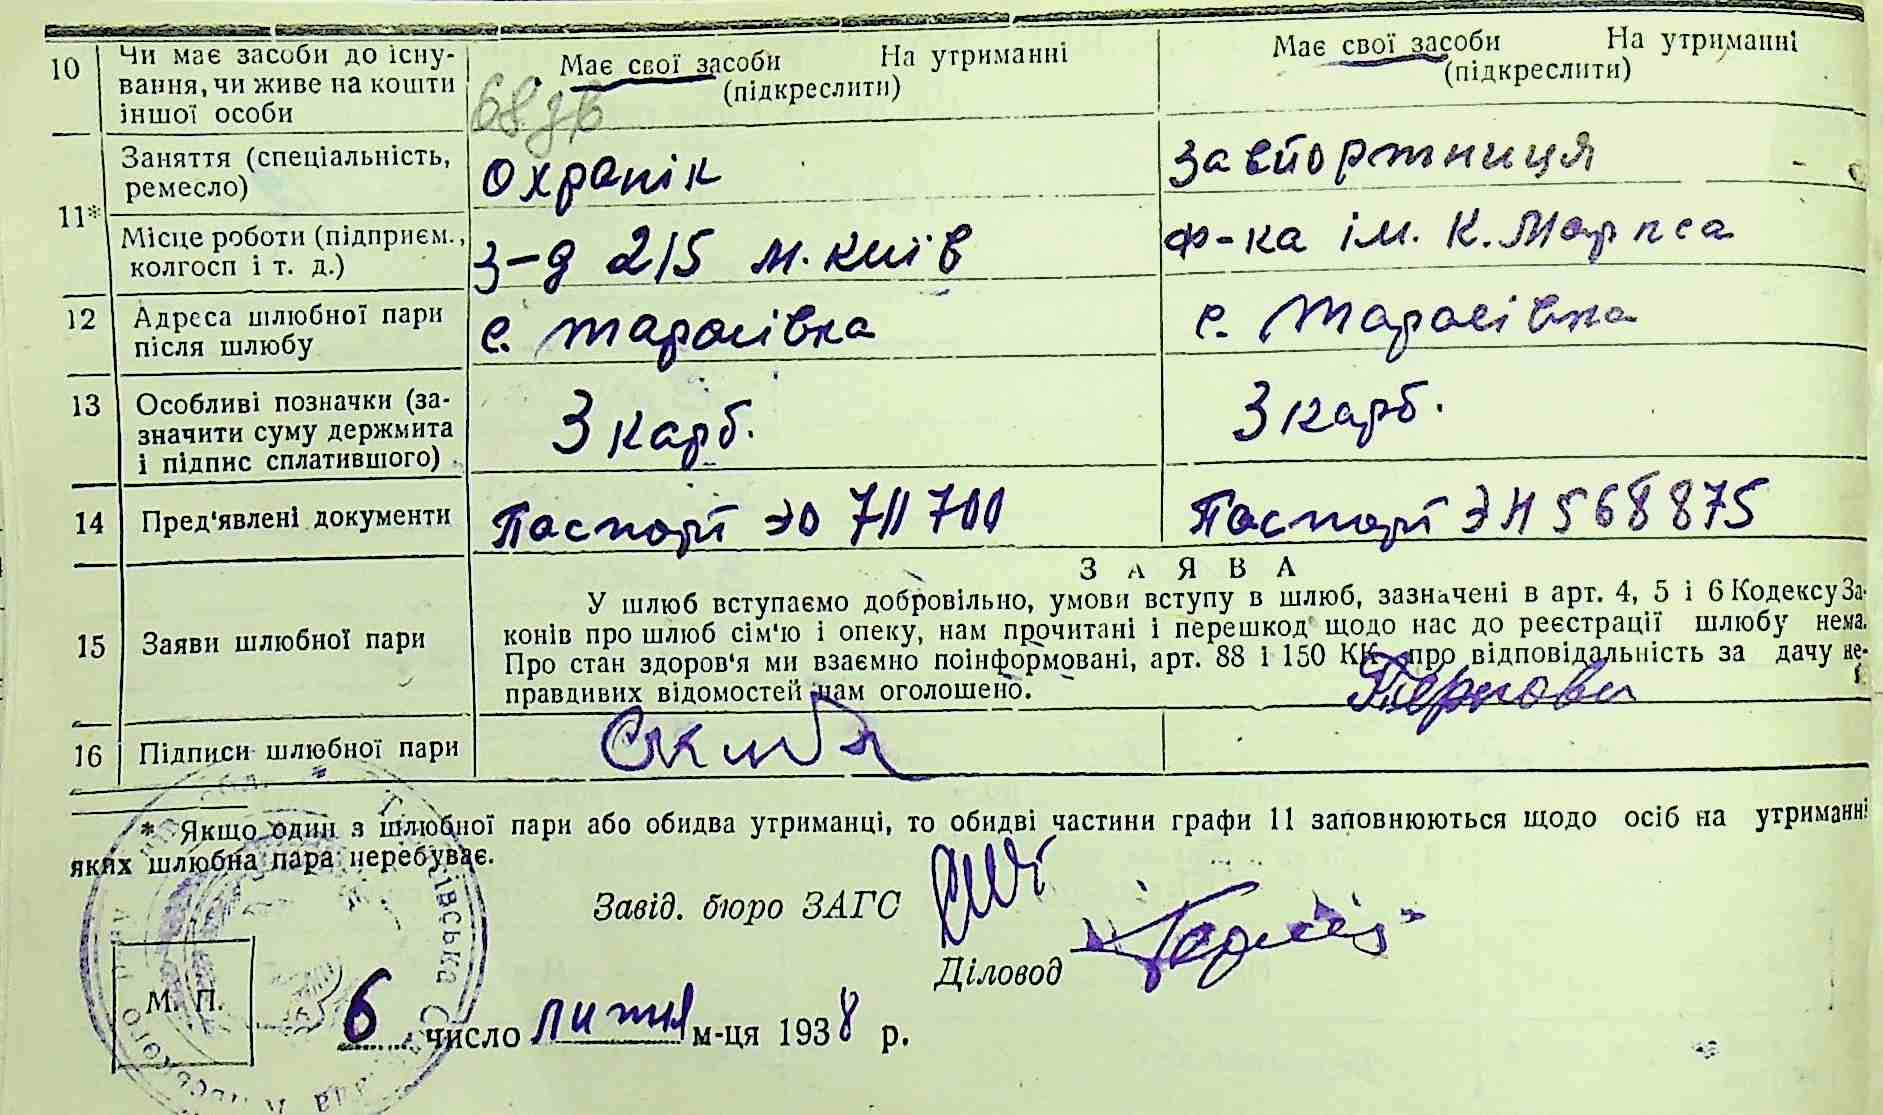 10 Чи має засоби до існу-
вання, чи живе на кошти
іншої особи
Має свої засоби На утриманні
(підкреслити)
Має свої засоби На утриманні
(підкреслити)
11* Заняття (спеціальність,
ремесло)
Охранік
Місце роботи (підприєм.,
колгосп і т. д.)
З-д 215 м. Київ
Ф-ка ім. К. Маркса
12 Адреса шлюбної пари
після шлюбу
с. Тарасівка
с. Тарасівка
13 Особливі позначки (за-
значити суму держмита
і підпис сплатившого)
3 карб.
3 карб.
14 Пред'явлені документи
Паспорт ЭО 711700
Паспорт ЭН 568875
15 Заяви шлюбної пари
ЗАЯВА
У шлюб вступаємо добровільно, умови вступу в шлюб, зазначені в арт. 4, 5 і 6 Кодексу За-
конів про шлюб сім'ю і опеку, нам прочитані і перешкод щодо нас до реєстрації шлюбу нема.
Про стан здоров'я ми взаємно поінформовані, арт. 88 і 150 КК про відповідальність за дачу не-
правдивих відомостей нам оголошено.
16 Підписи шлюбної пари
Скиба
* Якщо один з шлюбної пари або обидва утриманці, то обидві частини графи 11 заповнюються щодо осіб на утриманні
яких шлюбна пара перебуває.
Завід. бюро ЗАГС
Діловод
М. П.
6 число липня м-ця 1938 р.